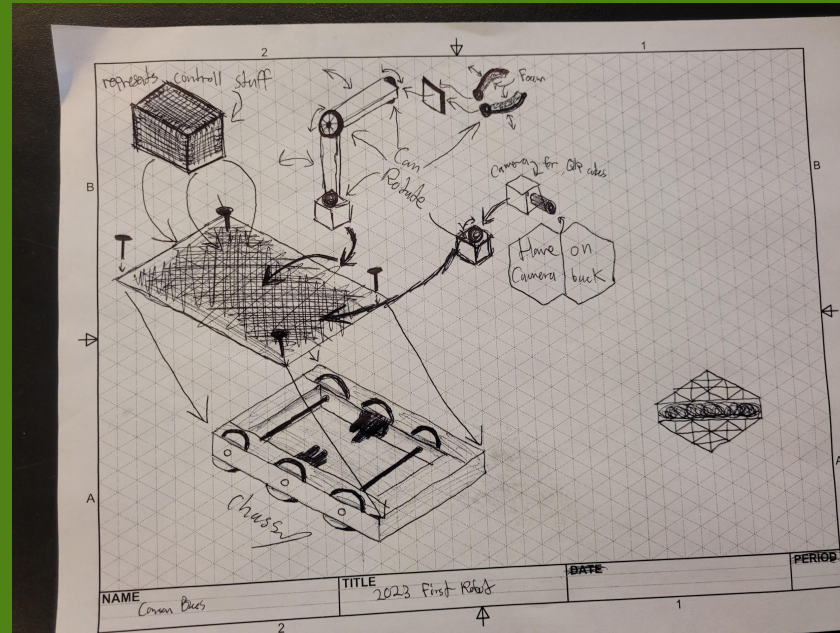 2
1
represents controll stuff
Foam
Can
Rotate
Camera for QR codes
Have on
Camera back
B
B
A
A
Chassy
NAME
TITLE
2023 First Robot
DATE
PERIOD
2
1